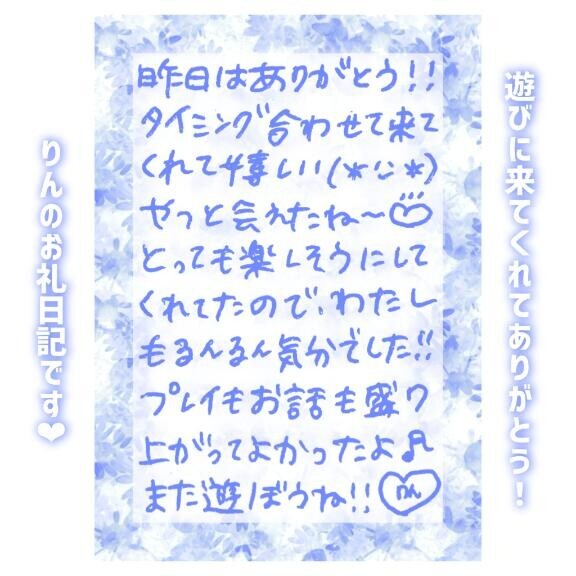 遊びに来てくれてありがとう！
昨日はありがとう!!
タイミング合わせて来て
くれて嬉しい(*¨*)
やっと会えたね〜
とっても楽しそうにして
くれてたので、わたし
もるんるん気分でした!!
プレイもお話も盛り
上がってよかったよ♫
また遊ぼうね!! りん
りんのお礼日記です❤